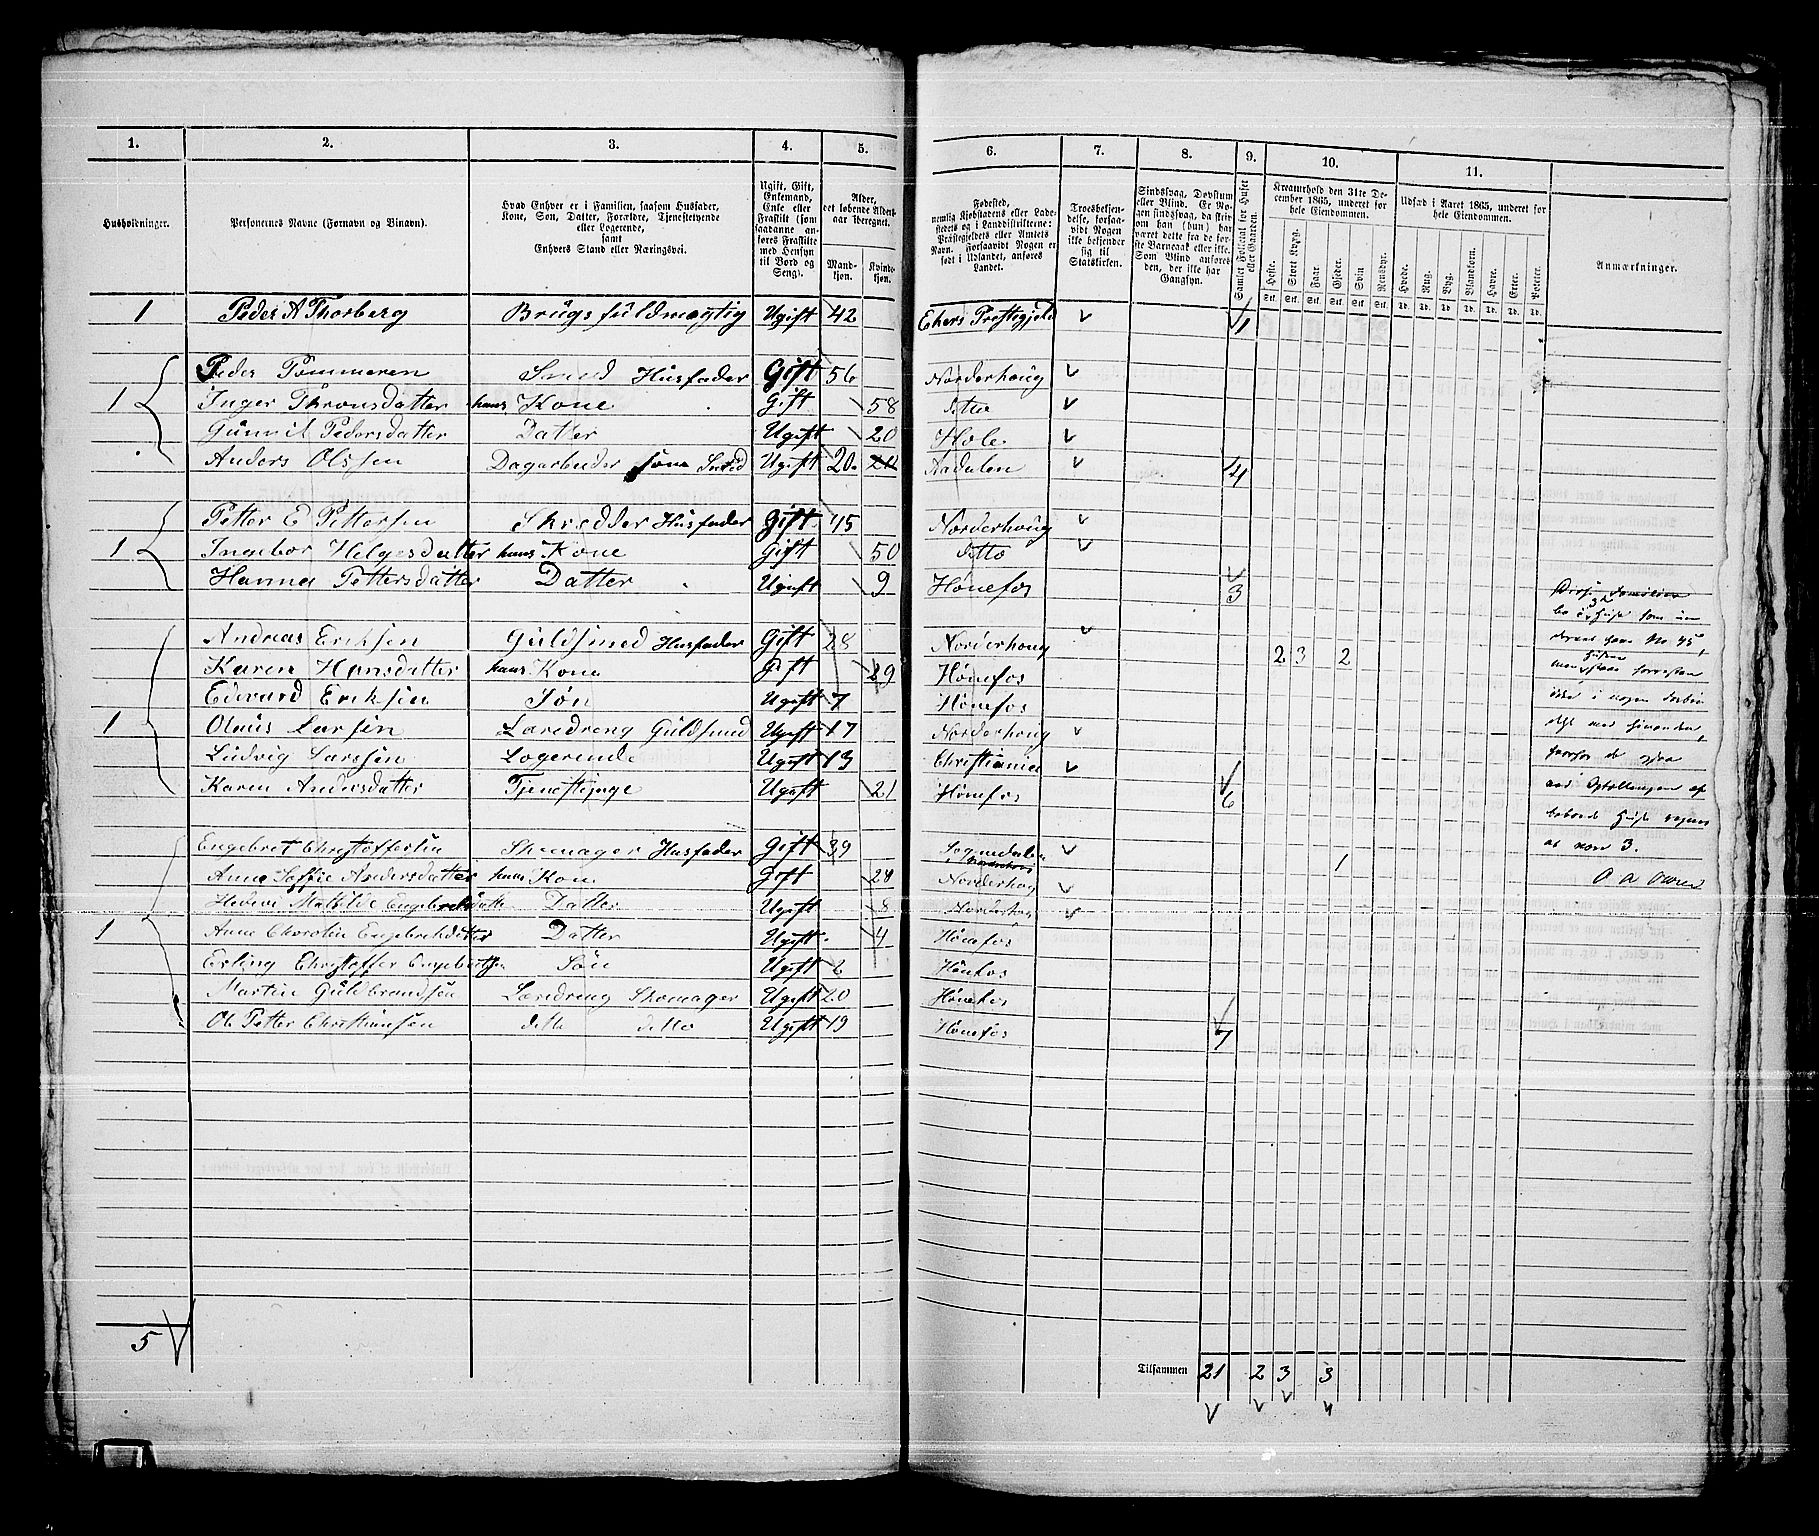 1. 2. 3. 4. 5. 6. 7. 8. 9. 10. 11.
Husholdninger.
Personernes Navne (Fornavn og Binavn).
Hvad Enhver er i Familien, saasom Husfader, Kone, Søn, Datter, Forældre, Tjenestetyende eller Logerende, samt Enhvers Stand eller Næringsvei.
Ugift, Gift, Enkemand, Enke eller Fraskilt (som saadanne anføres Fraskilte med Hensyn til Bord og Seng).
Alder, det løbende Aldersaar iberegnet.
Mandkjøn. Kvindekjøn.
Fødested, nemlig Kjøbstadens eller Ladestedets og i Landdistrikterne: Præstegjeldets eller Amtets Navn. Forsaavidt Nogen er født i Udlandet, anføres Landet.
Troesbekjendelse, forsaavidt Nogen ikke bekjender sig til Statskirken.
Sindssvag, Døvstum eller Blind. Er Nogen sindssvag, da skrives om han (hun) har været dette fra de første Barneaar eller ikke. Som Blind anføres den, der ikke har Gangsyn.
Samlet Folketal for Huset eller Gaarden.
Kreaturhold den 31te December 1865, underet for hele Eiendommen.
Heste. Stort Kvæg. Faar. Gjeder. Svin. Rensdyr.
Udsæd i Aaret 1865, underet for hele Eiendommen.
Hvede. Rug. Byg. Blandkorn. Havre. Erter. Poteter.
Anmærkninger.
Stk. Stk. Stk. Stk. Stk. Stk. Td. Td. Td. Td. Td. Td. Td.
1 Peder A Thorberg Brugsfuldmægtig Ugift 42 Ekers Prestegjeld 1
Peder Pommeren Smed Husfader Gift 56 Norderhoug
1 Inger Thronsdatter hans Kone Gift 58 ditto
Gunnil Pedersdatter Datter Ugift 20 Hole
Anders Olssen Dagarbeider som Smed Ugift 20 Aadalen 4
Petter E Pettersen Skrædder Husfader Gift 45 Norderhoug
1 Ingebor Helgesdatter hans Kone Gift 50 ditto
Hanna Pettersdatter Datter Ugift 9 Hønefos 3
Andreas Eriksen Guldsmed Husfader Gift 28 Norderhoug 2 3 2
Karen Hansdatter hans Kone Gift 29 Hønefos
Edvard Eriksen Søn Ugift 7 Hønefos
1 Olaus Larsen Læredreng Guldsmed Ugift 17 Norderhoug
Ludvig Larssen Logerende Ugift 13 Christiania
Karen Andersdatter Tjenestepige Ugift 21 Hønefos 6
Engebret Christoffersen Skomager Husfader Gift 39 Sognedalen 1
Anne Soffie Andersdatter hans Kone Gift 28 Norderhog
Helene Matilde Engebretsdatter Datter Ugift 8 Norderhog
1 Anne Chorotin Engebretsdatter Datter Ugift 4 Hønefos
Erling Christoffer Engebretsen Søn Ugift 2 Hønefos
Martin Guldbrandsen Læredreng Skomager Ugift 20 Hønefos
Ole Petter Christiansen ditto ditto Ugift 19 Hønefos 7
Disse Familier
Huse som
No 45,
men Husene staae forresten
ikke i nogen forbin
hvorfor de
ved Optællingen af
beboede Huse regnes
at være 3.
5
Tilsammen 21 2 3 3